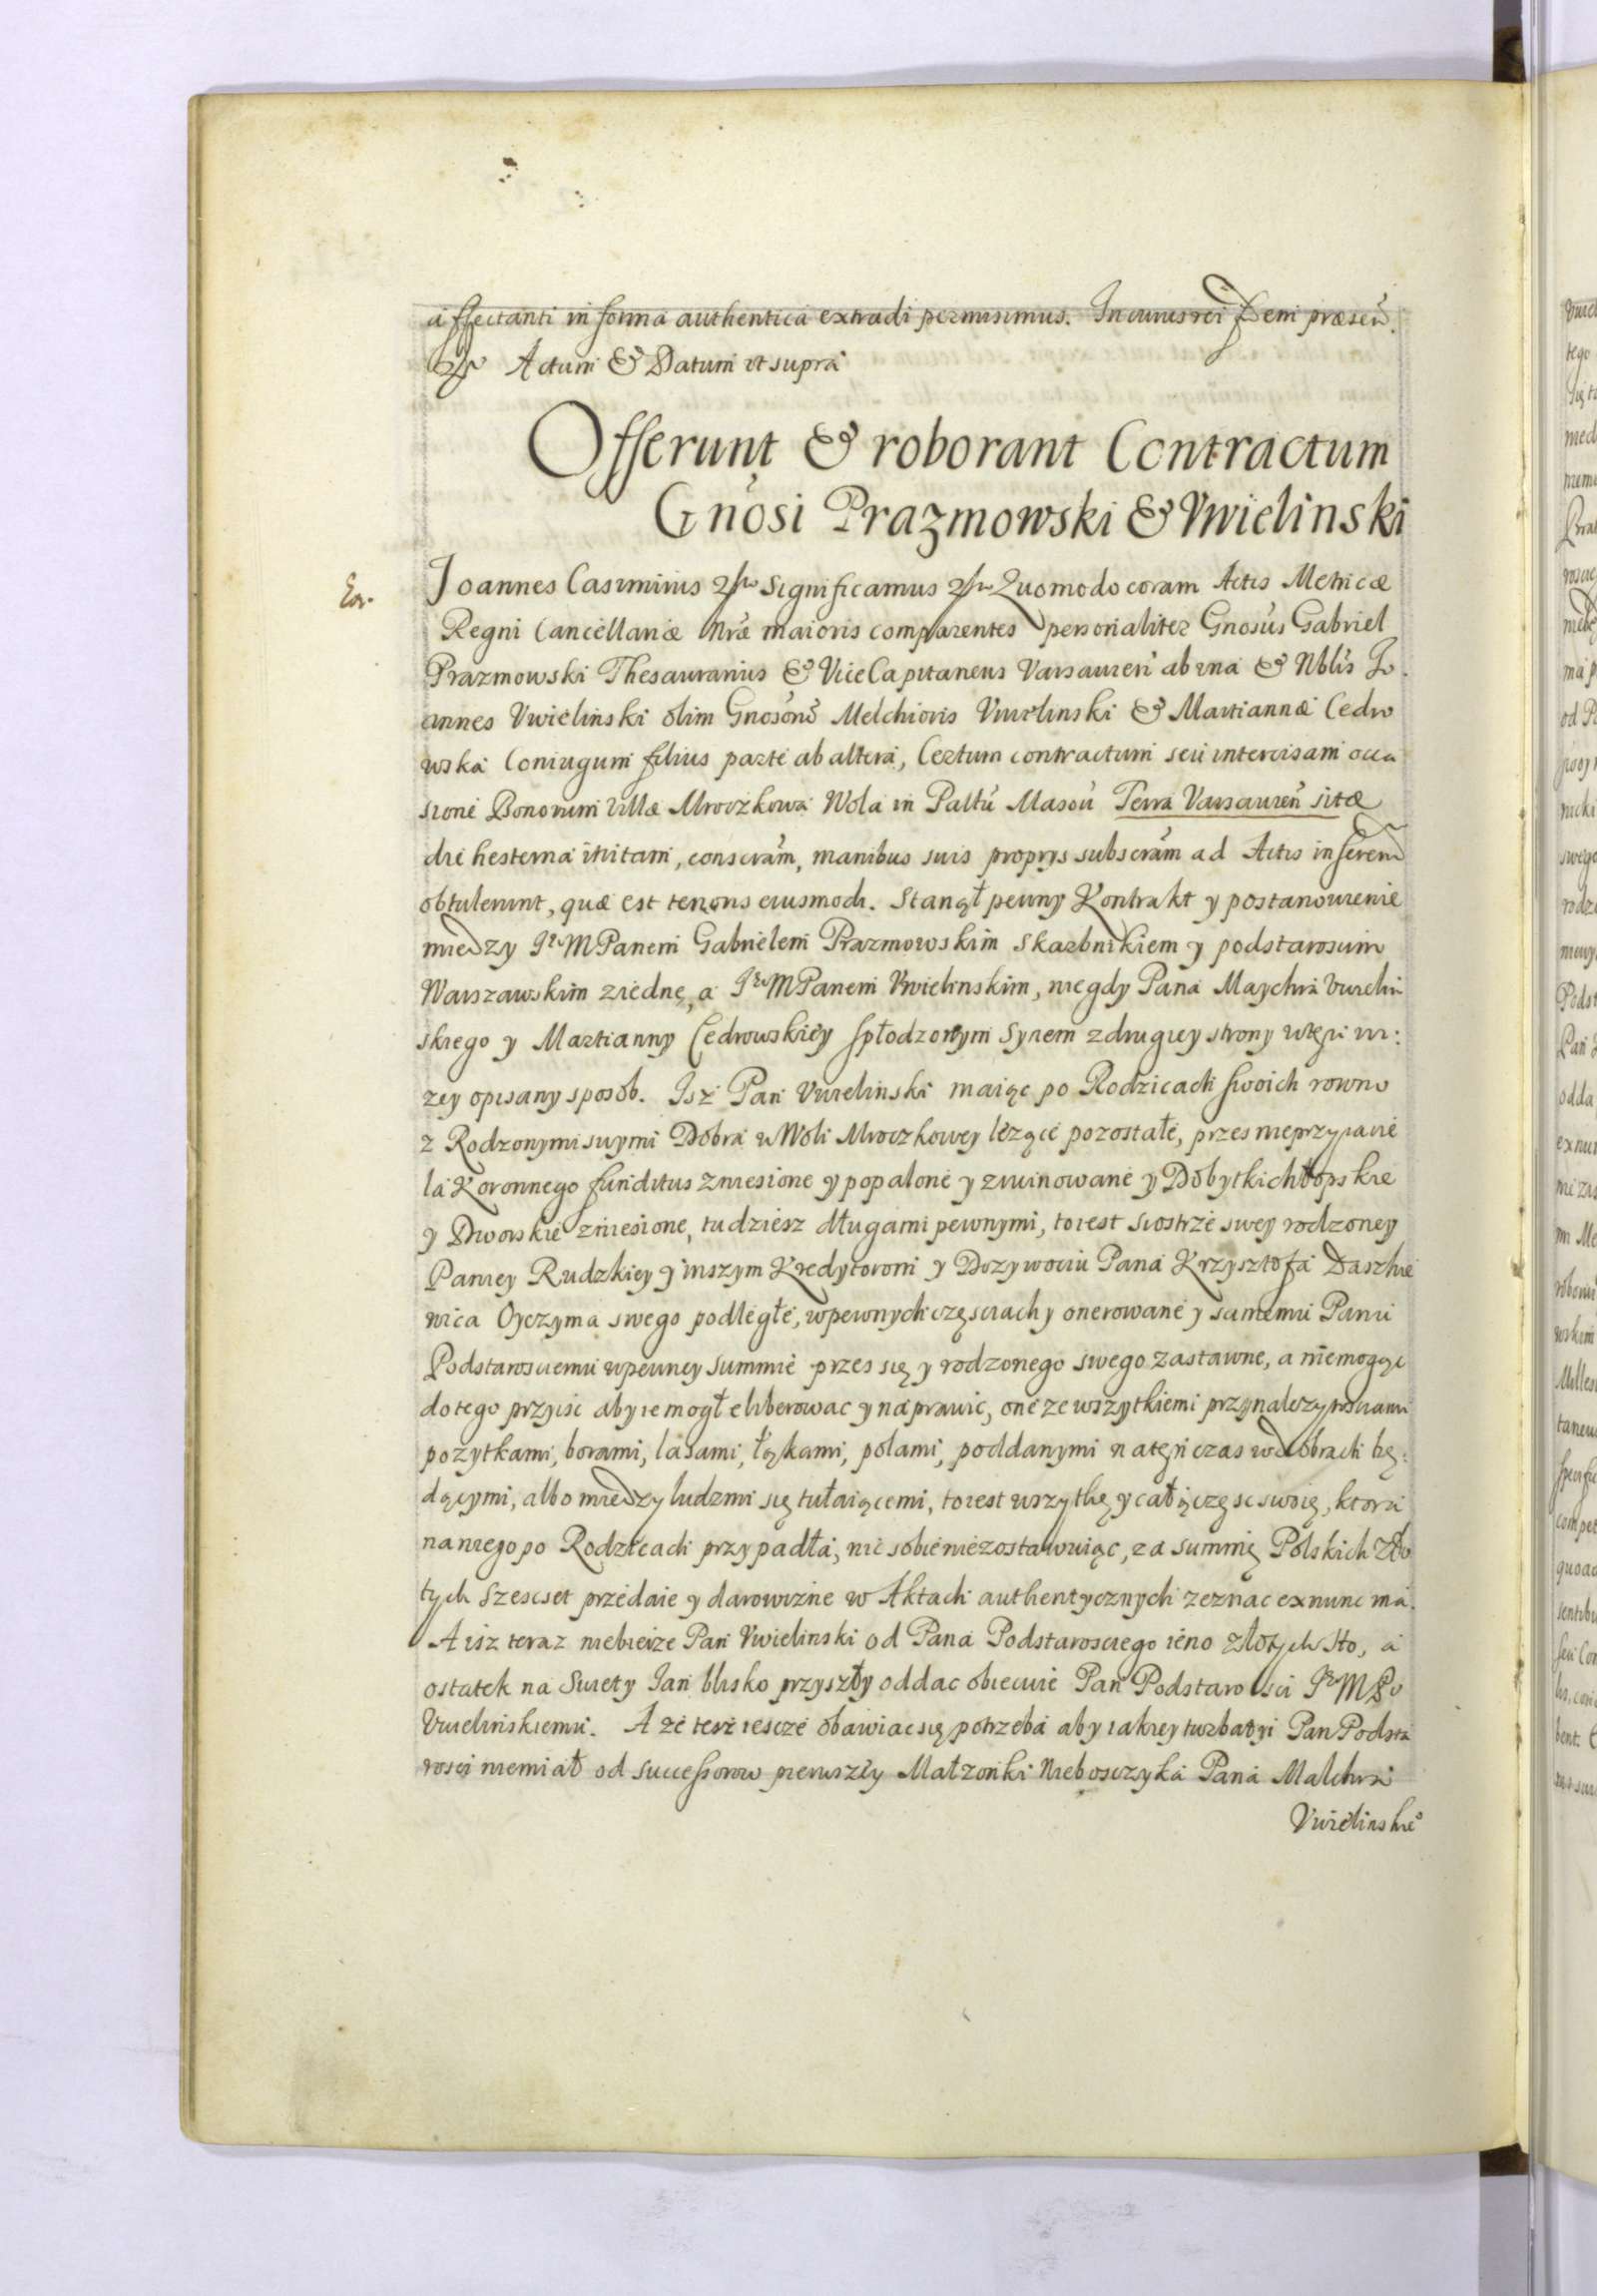 affectanti in forma authentica extradi permisimus. In cuius rei fidem præsen̄.
etc Actum & Datum ut supra
Offerunt & roborant Contractum
Gnosi Prazmowski & Vwielinski
Joannes Casimirus etc Significamus etc Quomodo coram Actis Metricæ
Regni Cancellariæ Nræ maioris comparentes personaliter Gnosus Gabriel
Prazmowski Thesaurarius & ViceCapitaneus Varsavien ab una & Nblis Jo
annes Vwielinski olim Gnosorū Melchioris Vwielinski & Martiannæ Cedro
wska Coniugum filius parte ab altera, Certum contractum seu intercisam occa
sione Bonorum Villæ Mroczkowa Wola in Paltu Masou Terra Varsavien sitæ
die hesterna initam, conscram, manibus suis proprys subscram ad Actis inserend
obtulerunt, quæ est tenoris eiusmodi. Stanął pewny Kontrakt y postanowienie
między Je͞o MPanem Gabrielem Prazmowskim Skarbnikiem y podstarosćim
Warszawskim ziedne, a Je͞o MPanem Vwielinskim, niegdy Pana Maychra Vwielin
skiego y Martianny Cedrowskiey spłodzonym Synem zdrugiey strony wten ni:
zey opisany sposób. Isz Pan Vwielinski maiąc po Rodzicach swoich rowno
z Rodzonymi swymi Dobra w Woli Mroczkowey lezące pozostałe, przes nieprzyiacie
la Koronnego funditus zniesione y popalone y zruinowane y Dobytki chłopskie
y Dworskie zniesione, tudziesz długami pewnymi, toiest siostrze swey rodzoney
Paniey Rudzkiey y inszym Kredytorom y Dozywociu Pana Krzysztofa Daszkie
wica Oyczyma swego podległe, wpewnych częsciach y onerowane y samemu Panu
Podstarosciemu wpewney summie przes się y rodzonego swego zastawne, a niemogąc
dotego przyisc aby ie mogł eliberowac y naprawic, one ze wszytkiemi przynaleznosciami
pozytkami, borami, lasami, łąkami, polami, poddanymi natęn czas w dobrach bę:
dącymi, albo między ludzmi się tułaiącemi, toiest wszytkę y całą częsc swoię, ktora
naniego po Rodzicach przypadła, nic sobie niezostawuiąc, za summę Polskich Zło
tych Szescset przedaie y darowizne w Aktach authentycznych zeznac ex nunc ma.
A isz teraz niebierze Pan Vwielinski od Pana Podstarosciego ieno złotych Sto, a
ostatek na Swiety Jan blisko przyszły oddac obiecuie Pan Podstarosci Je͞o M P͞u
Vwielinskiemu. A ze tesz iescze obawiac się potrzeba aby iakiey turbatyi Pan Podsta
rosci niemiał od Successorow pierwszey Małzonki Nieboszczyka Pana Malchra
Vwielinskie͞o